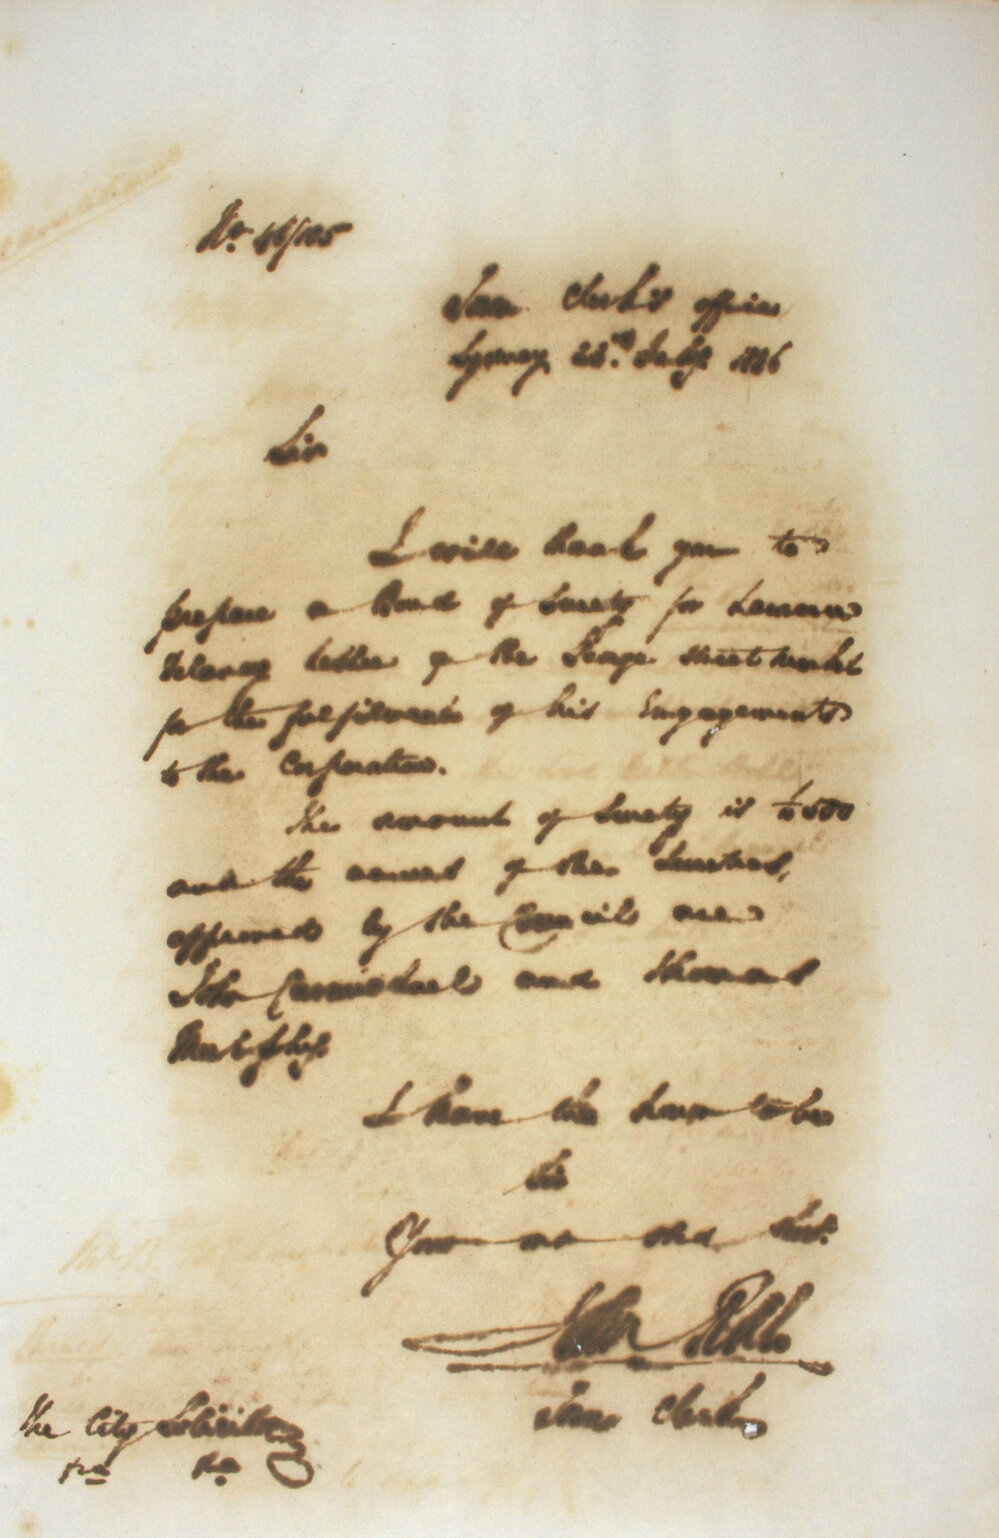 No. 46/105
Town Clerk's office
Sydney 22nd July 1846
Sir
I will thank you to
prepare a Bond of Surety for
Lessee of the George Street Market
for the fulfilment of his Engagements
to the Corporation.
The amount of Surety is £500
and the names of the Sureties,
approved by the Council are
John Carmichael and Thomas
Murphy.
I have the honor to be
Sir
Your mo obd Servt.
John Rae
Town Clerk
The City Solicitor
&c &c